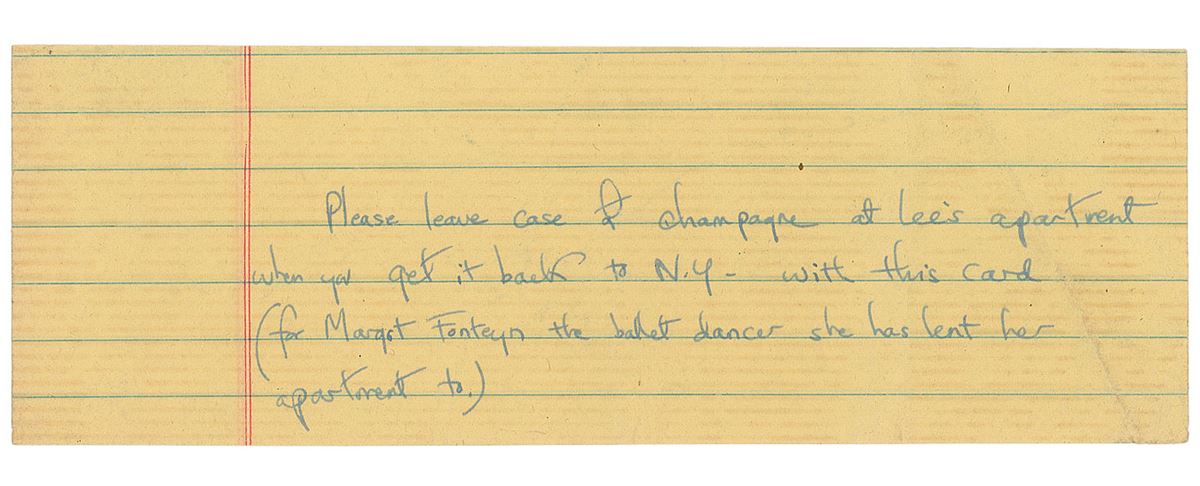 Please leave case of champagne at Lee's apartment
when you get it back to N.Y - with this card
(for Margot Fonteyn the ballet dancer she has lent her
apartment to.)